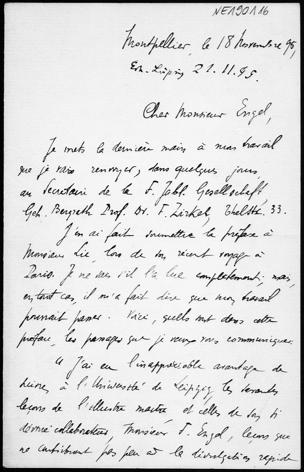 NE190116
Montpellier, le 18 Novembre 95,
21.11.95.
Cher Monsieur Engel,
Je mets la dernière main à mon travail
que je vais renvoyer, dans quelques jours,
au Secrétaire de la F. Jabl. Gesellschaft
Geh. Bergrath Prof. Dr. F. Zirkel, Thalstr. 33.
J'en ai fait soumettre la préface à
Monsieur Lie, lors de son récent voyage à
Paris. Je ne sais s'il l'a lue complètement; mais,
en tout cas, il m'a fait dire que mon travail
pourrait passer. Voici, quels sont dans cette
préface, les passages que je veux vous communiquer.
"J'ai eu l'inappréciable avantage de
suivre, à l'Université de Leipzig, les savantes
leçons de l'illustre maître et celles de son si
dévoué collaborateur, Monsieur F. Engel, leçons qui
ne contribuent pas peu à la divulgation rapide